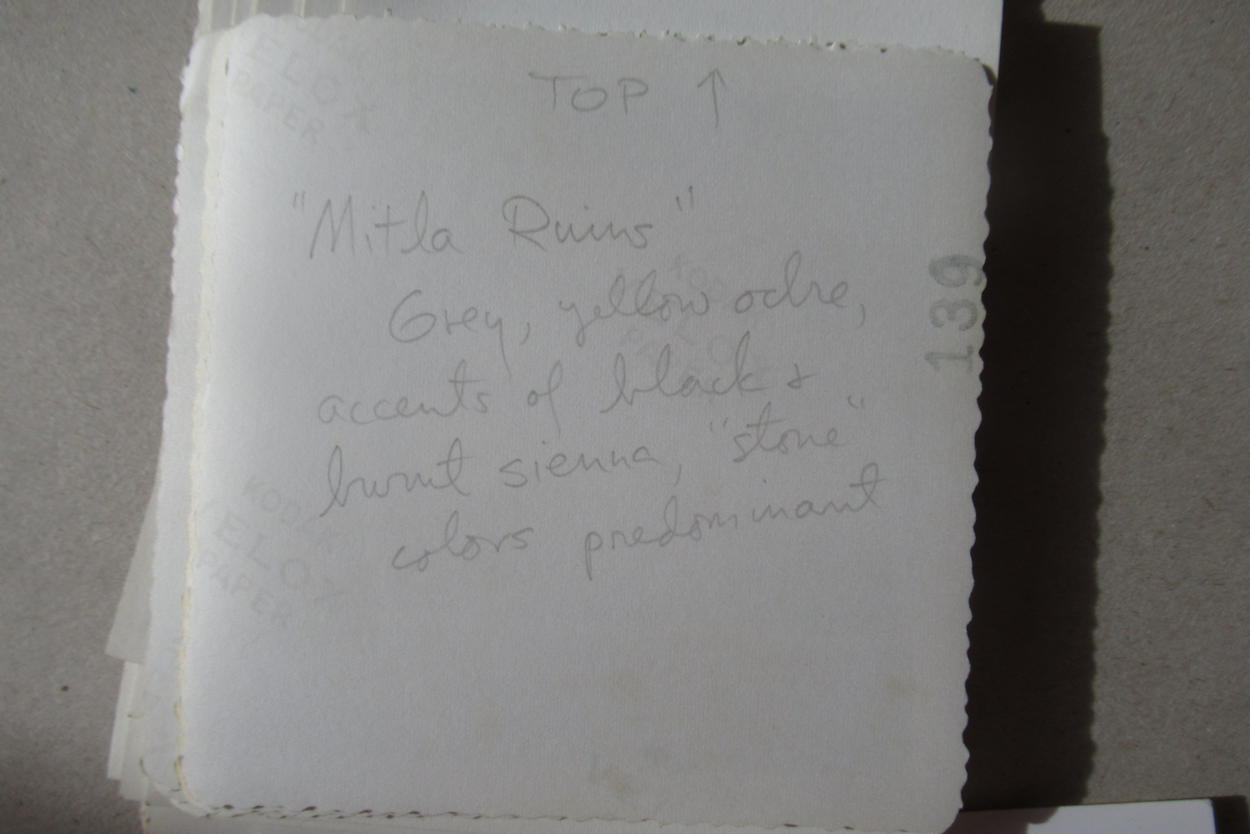 TOP ↑
"Mitla Ruins"
Grey, yellow ochre,
accents of black &
burnt sienna, "stone"
colors predominant
139
ELOX
PAPER
KODAK
ELOX
PAPER